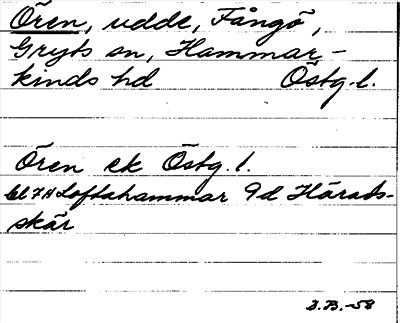 Ören, udde, Fångö,
Gryts sn, Hammar-
kinds hd Östg.l.
Ören ek Östg.l.
Bl 7H Loftahammar 9d Härads-
skär
B.-58